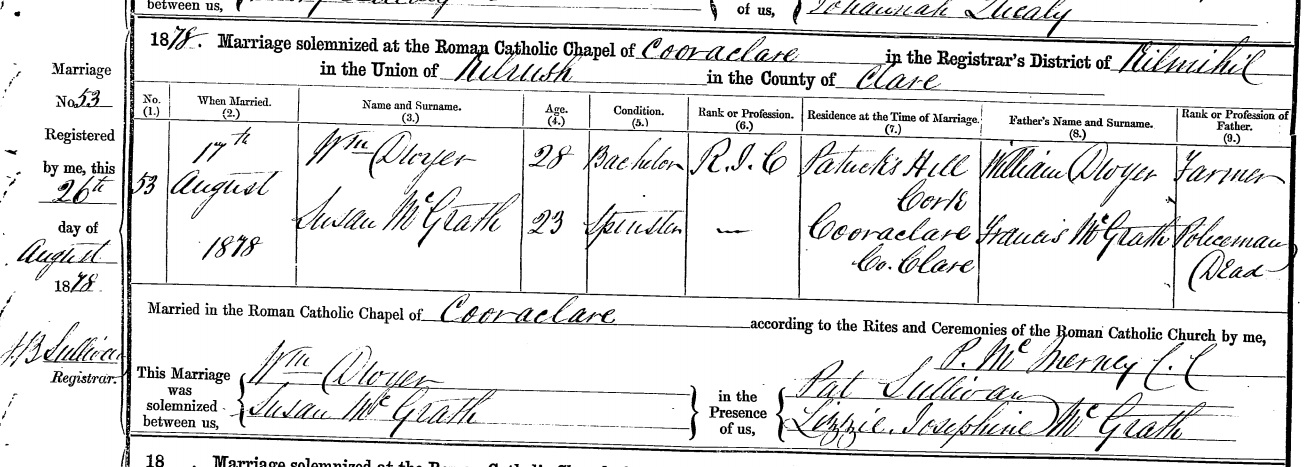 between us,
of us,
Johannah Quealy
1878. Marriage solemnized at the Roman Catholic Chapel of Cooraclare in the Registrar's District of Kilmihil
in the Union of Kilrush in the County of Clare
Marriage
No. 53
Registered
by me, this
26th
day of
August
1878.
Registrar.
No. (1.) When Married. (2.) Name and Surname. (3.) Age. (4.) Condition. (5.) Rank or Profession. (6.) Residence at the Time of Marriage. (7.) Father's Name and Surname. (8.) Rank or Profession of Father. (9.)
53 17th August 1878
Wm Dwyer 28 Bachelor R.I.C Patrick's Hill Cork William Dwyer Farmer
Susan McGrath 23 Spinster — Cooraclare Co. Clare Francis McGrath Policeman (Dead
Married in the Roman Catholic Chapel of Cooraclare according to the Rites and Ceremonies of the Roman Catholic Church by me,
P. McInerney C.C
This Marriage was solemnized between us,
Wm Dwyer
Susan McGrath
in the Presence of us,
Pat Sullivan
Lizzie Josephine McGrath
18 . Marriage solemnized at the Roman Catholic Chapel of